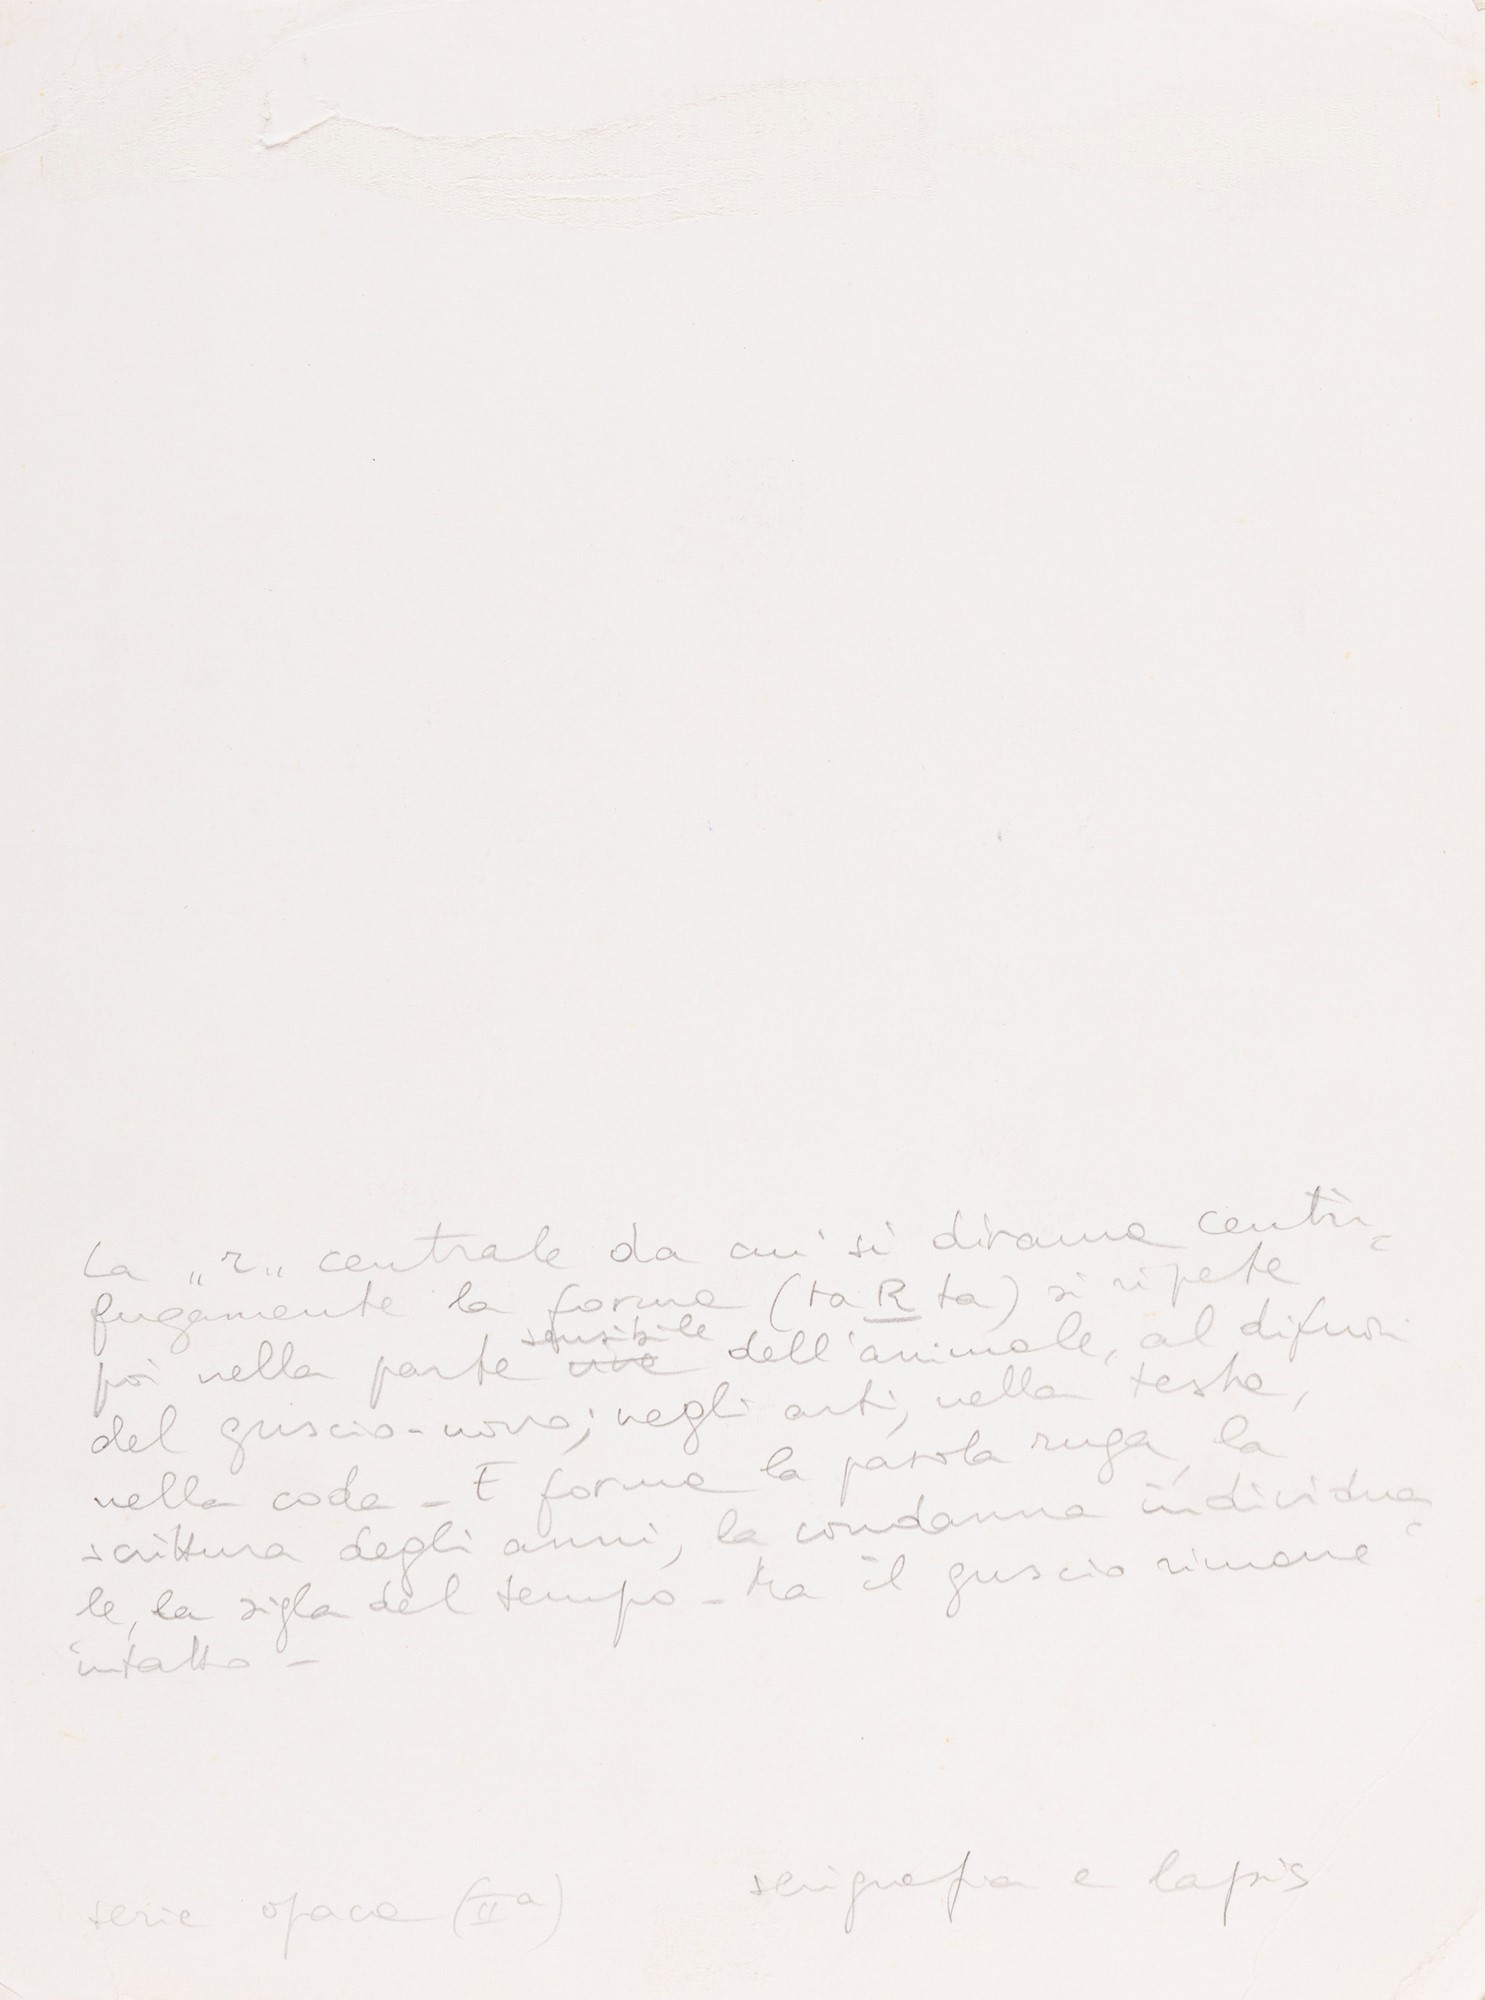 La „r„ centrale da cui si dirama centri=
fugamente la forma (taRta) si ripete
poi nella parte sensibile viva dell'animale, al difuori
del guscio-uovo; negli arti, nella testa,
nella coda - E forma la parola ruga, la
scrittura degli anni, la condanna individua=
le, la sigla del tempo - Ma il guscio rimane
intatto -
serie opaca (IIa)
serigrafia e lapis